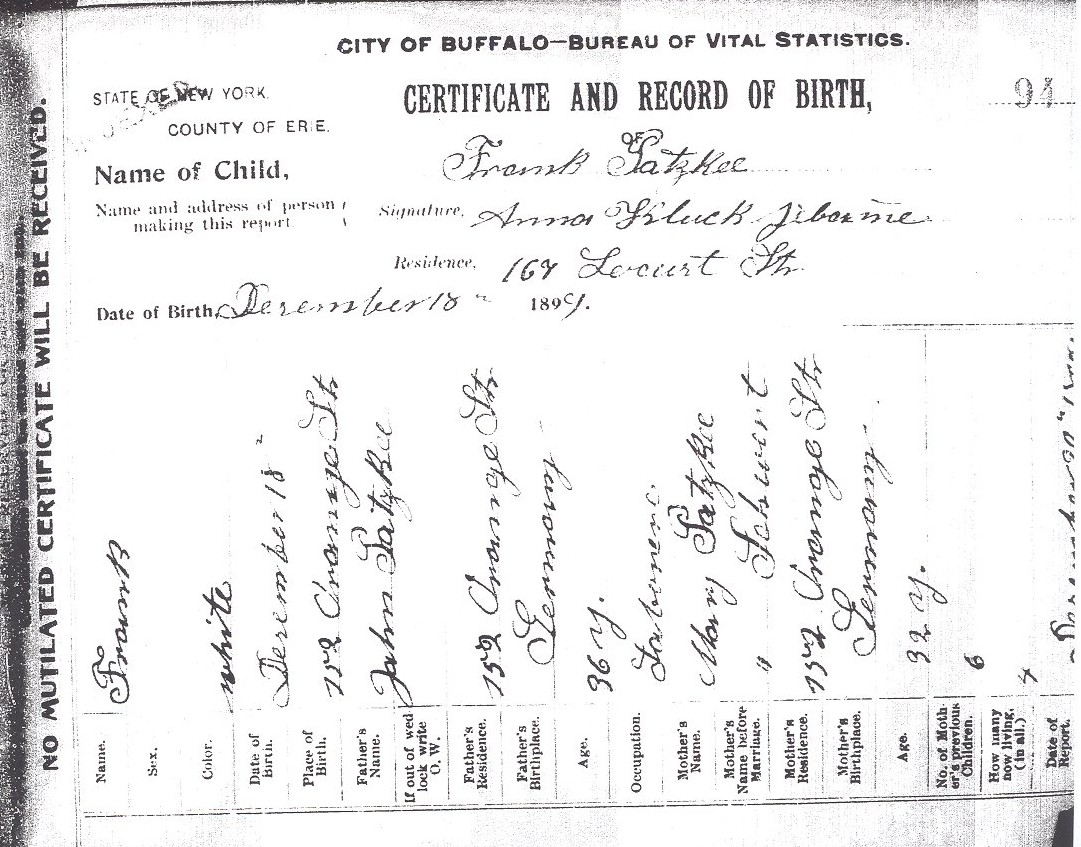 NO MUTILATED CERTIFICATE WILL BE RECEIVED.
CITY OF BUFFALO—BUREAU OF VITAL STATISTICS.
STATE OF NEW YORK.
COUNTY OF ERIE.
CERTIFICATE AND RECORD OF BIRTH,
94
OF
Name of Child, Frank Patzkee
Name and address of person making this report
Signature, Anna Kluck
Residence, 167 Locust Str
Date of Birth, December 18 1899.
Name. Frank
Sex.
Color. white
Date of Birth. December 18
Place of Birth. 152 Orange Str
Father's Name. John Patzkee
If out of wed lock write O. W.
Father's Residence. 152 Orange Str
Father's Birthplace. Germany
Age. 36 y.
Occupation. Laborer
Mother's Name. Mary Patzkee
Mother's Name before Marriage. "
Mother's Residence. 152 Orange Str
Mother's Birthplace. Germany
Age. 32 y.
No. of Mother's previous Children. 6
How many now living, (in all.) 4
Date of Report.